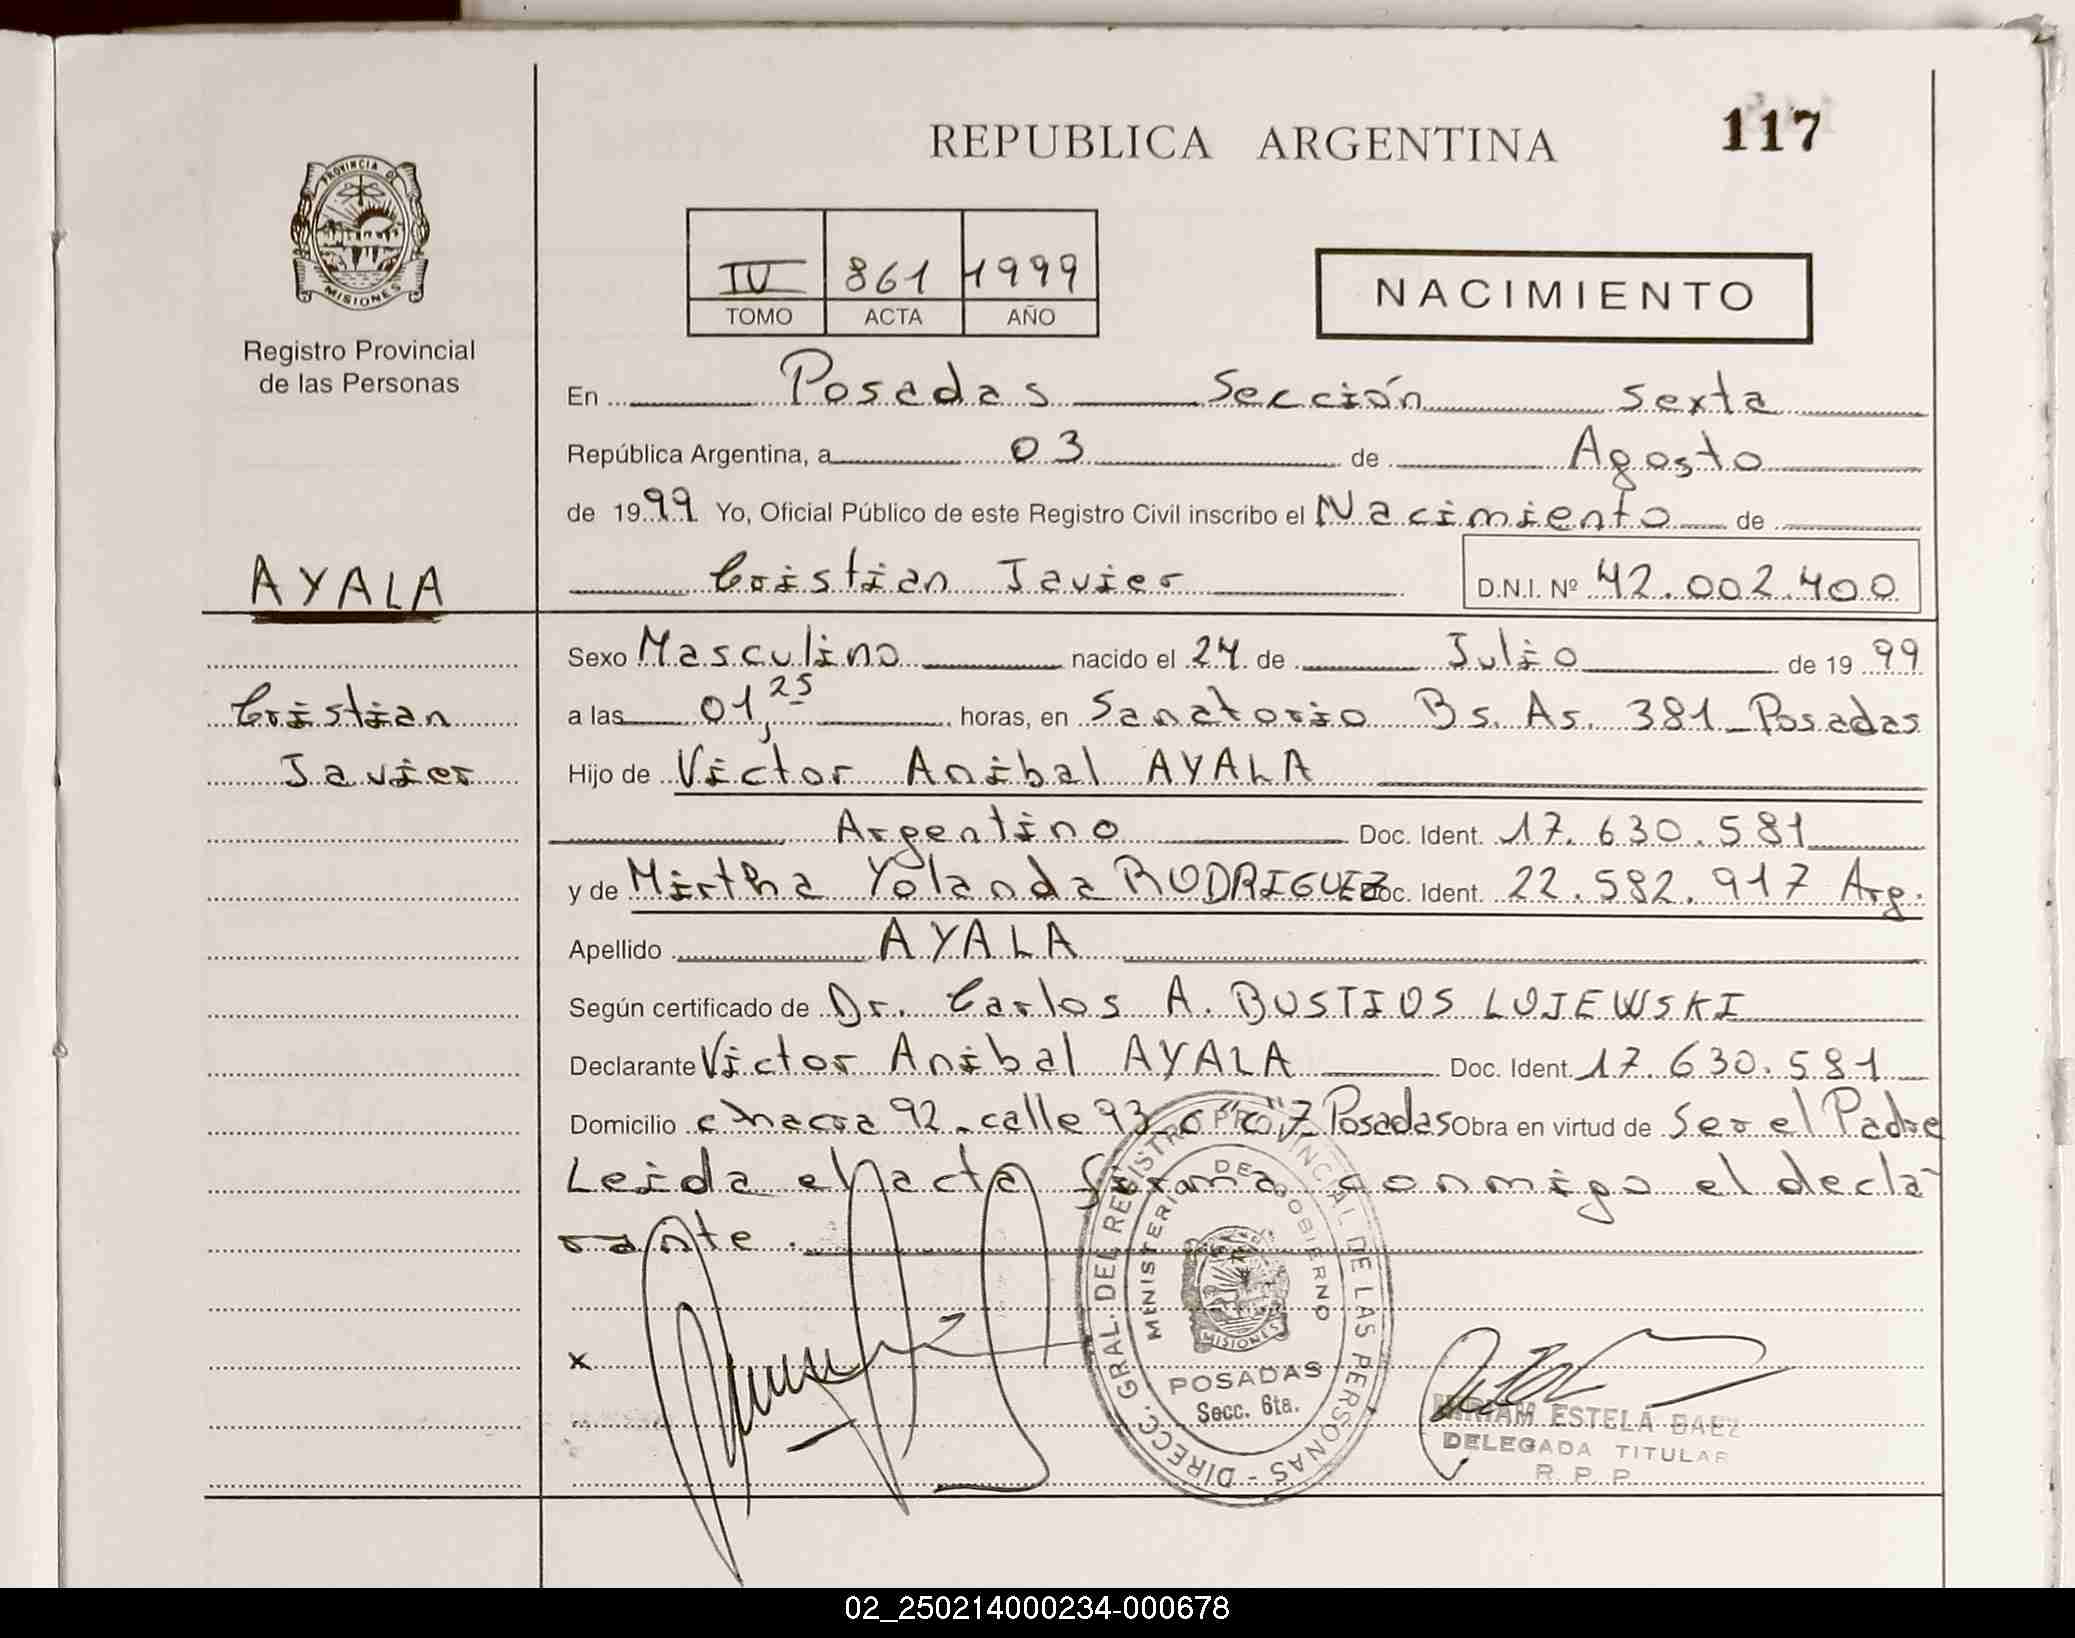 REPUBLICA ARGENTINA
117
PROVINCIA DE
MISIONES
Registro Provincial
de las Personas
IV 861 1999
TOMO ACTA AÑO
NACIMIENTO
En Posadas Sección sexta
República Argentina, a 03 de Agosto
de 1999 Yo, Oficial Público de este Registro Civil inscribo el Nacimiento de
Cristian Javier D.N.I. Nº 42.002.400
AYALA
Cristian
Javier
Sexo Masculino nacido el 24 de Julio de 19 99
a las 01,25 horas, en Sanatorio Bs. As. 381 _ Posadas
Hijo de Victor Anibal AYALA
Argentino Doc. Ident. 17.630.581
y de Mirtha Yolanda RODRIGUEZ Doc. Ident. 22.582.917 Arg.
Apellido AYALA
Según certificado de Dr. Carlos A. BUSTIOS LOJEWSKI
Declarante Victor Anibal AYALA Doc. Ident. 17.630.581
Domicilio chacra 92 - calle 93 Posadas Obra en virtud de Ser el Padre
Leida el acta firma conmigo el decla-
rante.
x
DIRECC. GRAL. DEL REGISTRO PROVINCIAL DE LAS PERSONAS -
MINISTERIO DE GOBIERNO
MISIONES
POSADAS
Secc. 6ta.
MIRIAM ESTELA BAEZ
DELEGADA TITULAR
R. P. P.
02_250214000234-000678